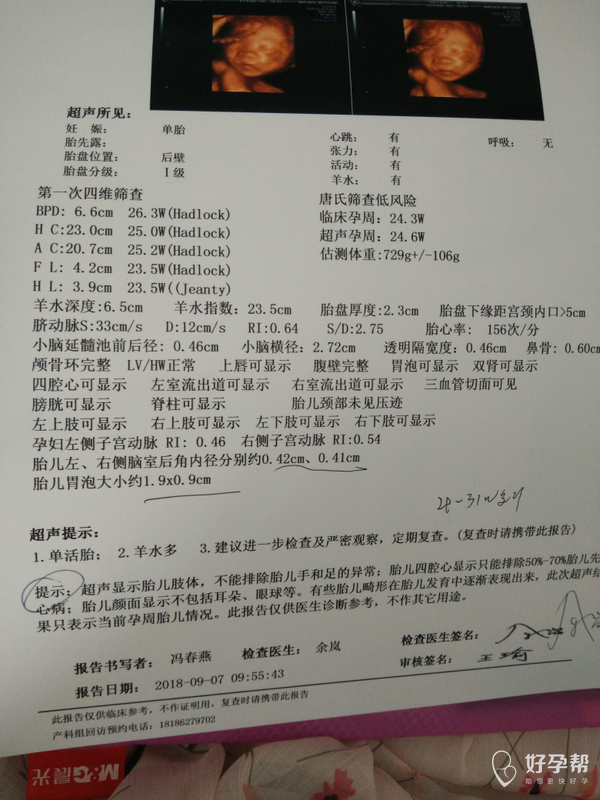 超声所见：
妊 娠： 单胎 心跳： 有 呼吸： 无
胎先露： 张力： 有
胎盘位置： 后壁 活动： 有
胎盘分级： Ⅰ级 羊水： 有
第一次四维筛查 唐氏筛查低风险
BPD: 6.6cm 26.3W(Hadlock) 临床孕周：24.3W
H C:23.0cm 25.0W(Hadlock) 超声孕周：24.6W
A C:20.7cm 25.2W(Hadlock) 估测体重:729g+/-106g
F L: 4.2cm 23.5W(Hadlock)
H L: 3.9cm 23.5W((Jeanty)
羊水深度:6.5cm 羊水指数：23.5cm 胎盘厚度:2.3cm 胎盘下缘距宫颈内口>5cm
脐动脉S:33cm/s D:12cm/s RI:0.64 S/D:2.75 胎心率： 156次/分
小脑延髓池前后径: 0.46cm 小脑横径：2.72cm 透明隔宽度：0.46cm 鼻骨：0.60cm
颅骨环完整 LV/HW正常 上唇可显示 腹壁完整 胃泡可显示 双肾可显示
四腔心可显示 左室流出道可显示 右室流出道可显示 三血管切面可见
膀胱可显示 脊柱可显示 胎儿颈部未见压迹
左上肢可显示 右上肢可显示 左下肢可显示 右下肢可显示
孕妇左侧子宫动脉 RI: 0.46 右侧子宫动脉 RI:0.54
胎儿左、右侧脑室后角内径分别约0.42cm、0.41cm
胎儿胃泡大小约1.9x0.9cm
超声提示：
1.单活胎； 2.羊水多 3.建议进一步检查及严密观察，定期复查。（复查时请携带此报告）
提示：超声显示胎儿肢体，不能排除胎儿手和足的异常；胎儿四腔心显示只能排除50%-70%胎儿先
心病；胎儿颜面显示不包括耳朵、眼球等。有些胎儿畸形在胎儿发育中逐渐表现出来，此次超声结
果只表示当前孕周胎儿情况。此报告仅供医生诊断参考，不作其它用途。
报告书写者： 冯春燕 检查医生： 余岚 检查医生签名：
报告日期： 2018-09-07 09:55:43 审核签名：
此报告仅供临床参考，不作证明用，复查时请携带此报告
产科组回访预约电话：18186279702
M&G晨光
好孕帮
助您更快好孕